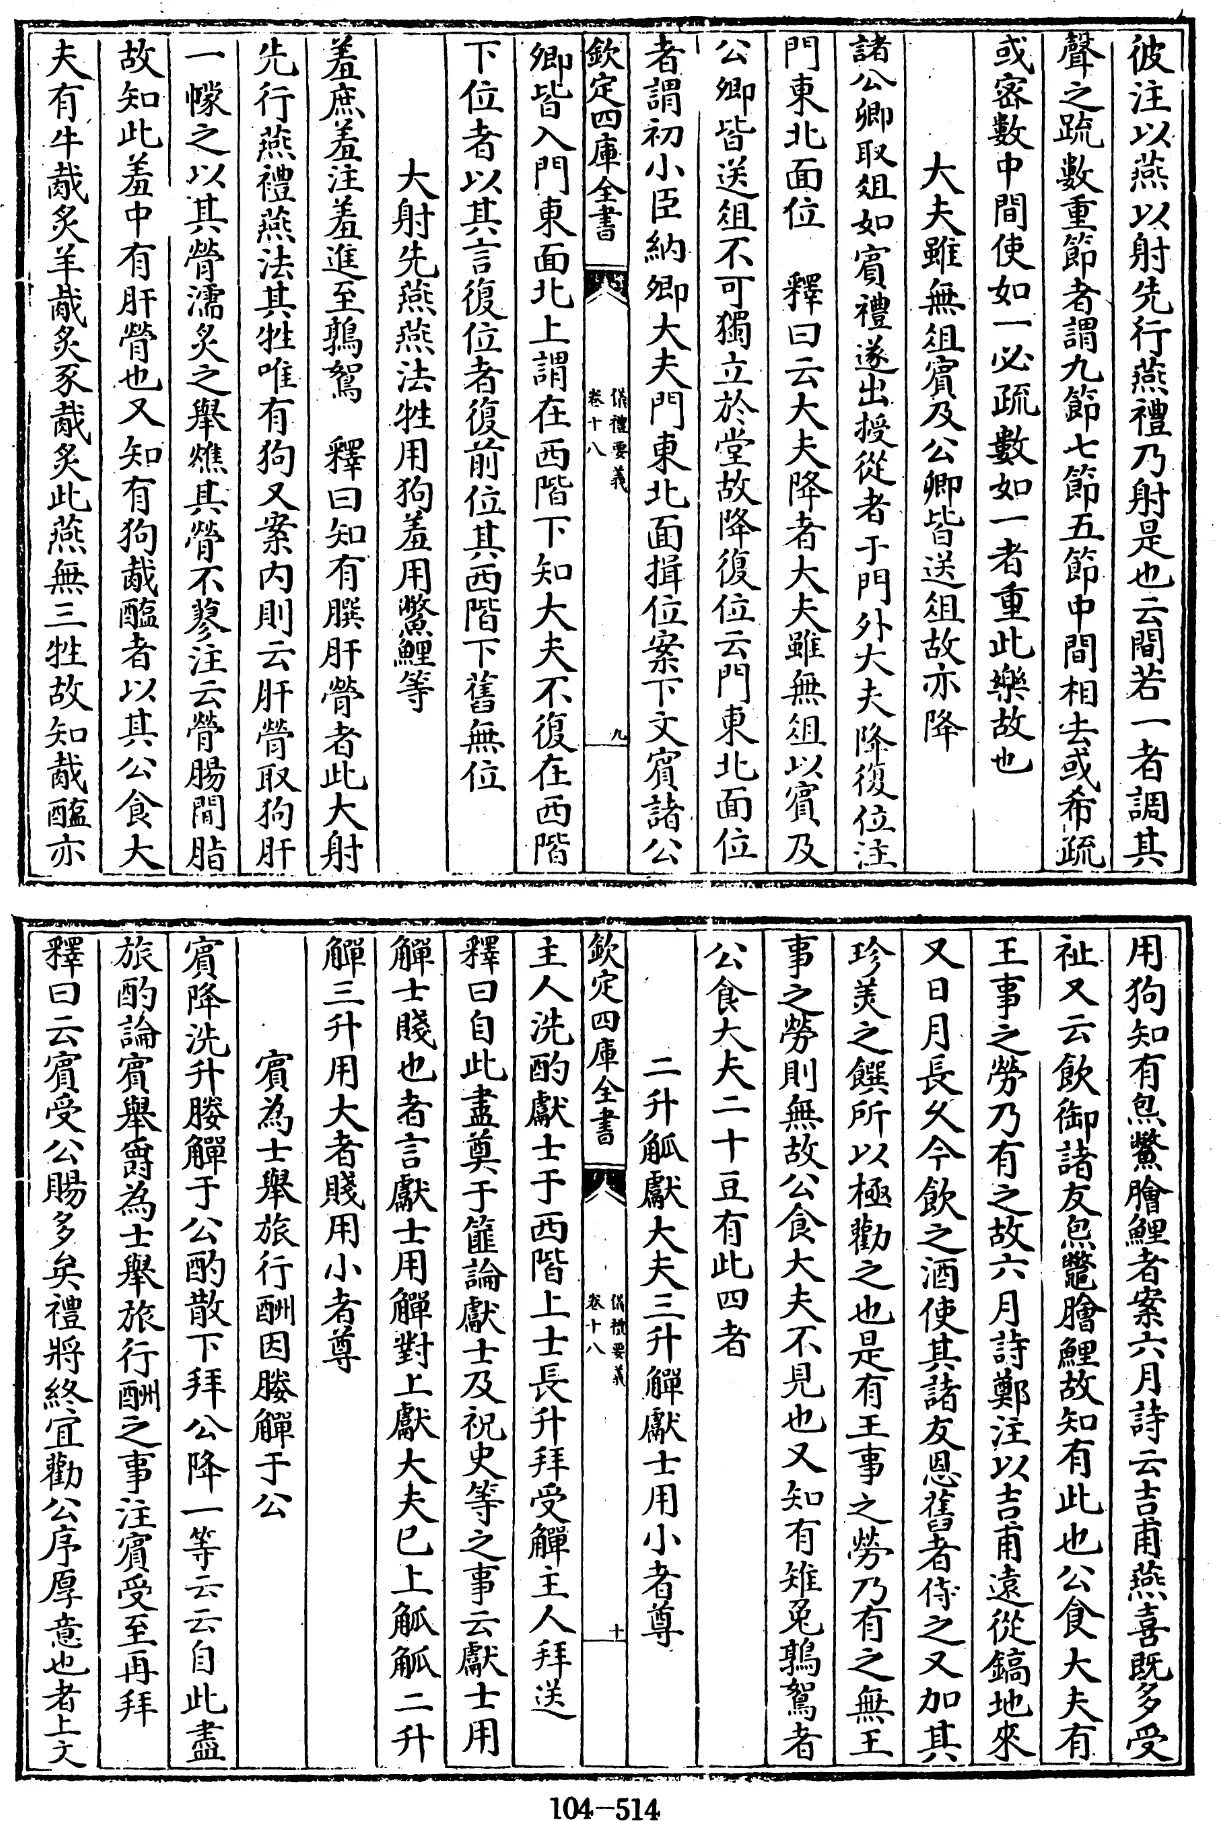 彼注以燕以射先行燕禮乃射是也云間若一者調其
聲之疏數重節者謂九節七節五節中間相去或希疏
或密數中間使如一必疏數如一者重此樂故也
大夫雖無俎賓及公卿皆送俎故亦降
諸公卿取俎如賓禮遂出授從者于門外大夫降復位注
門東北面位 釋曰云大夫降者大夫雖無俎以賓及
公卿皆送俎不可獨立於堂故降復位云門東北面位
者謂初小臣納卿大夫門東北面揖位案下文賓諸公
欽定四庫全書 儀禮要義 卷十八 九
卿皆入門東面北上謂在西階下知大夫不復在西階
下位者以其言復位者復前位其西階下舊無位
大射先燕燕法牲用狗羞用鱉鯉等
羞庶羞注羞進至鶉鴽 釋曰知有膫肝膋者此大射
先行燕禮燕法其牲唯有狗又案內則云肝膋取狗肝
一幪之以其膋濡炙之舉燋其膋不蓼注云膋腸間脂
故知此羞中有肝膋也又知有狗胾醢者以其公食大
夫有牛胾炙羊胾炙豕胾炙此燕無三牲故知胾醢亦
用狗知有炰鱉膾鯉者案六月詩云吉甫燕喜既多受
祉又云飲御諸友炰鼈膾鯉故知有此也公食大夫有
王事之勞乃有之故六月詩鄭注以吉甫遠從鎬地來
又日月長久今飲之酒使其諸友恩舊者侍之又加其
珍美之饌所以極勸之也是有王事之勞乃有之無王
事之勞則無故公食大夫不見也又知有雉兔鶉鴽者
公食大夫二十豆有此四者
二升觚獻大夫三升觶獻士用小者尊
欽定四庫全書 儀禮要義 卷十八 十
主人洗酌獻士于西階上士長升拜受觶主人拜送
釋曰自此盡奠于篚論獻士及祝史等之事云獻士用
觶士賤也者言獻士用觶對上獻大夫已上觚觚二升
觶三升用大者賤用小者尊
賓為士舉旅行酬因媵觶于公
賓降洗升媵觶于公酌散下拜公降一等云云自此盡
旅酌論賓舉爵為士舉旅行酬之事注賓受至再拜
釋曰云賓受公賜多矣禮將終宜勸公序厚意也者上文
104-514